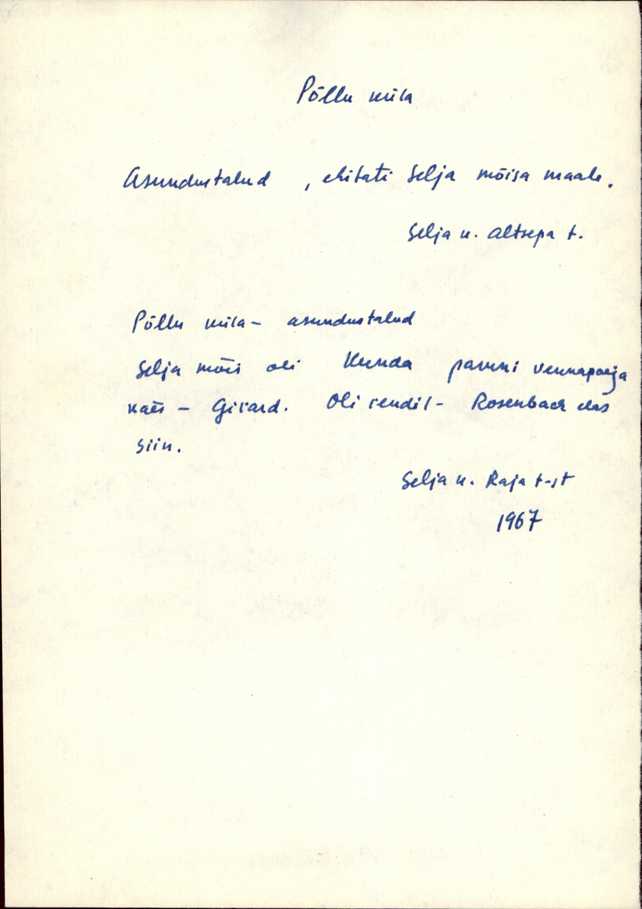 Põllu küla
Asundustalud , ehitati Selja mõisa maale.
Selja k. Altsepa t.
Põllu küla - asundustalud
Selja mõis oli Kunda paruni vennapoja
käes - Girard. Oli rendil - Rosenbach elas
siin.
Selja k. Raja t-st
1967